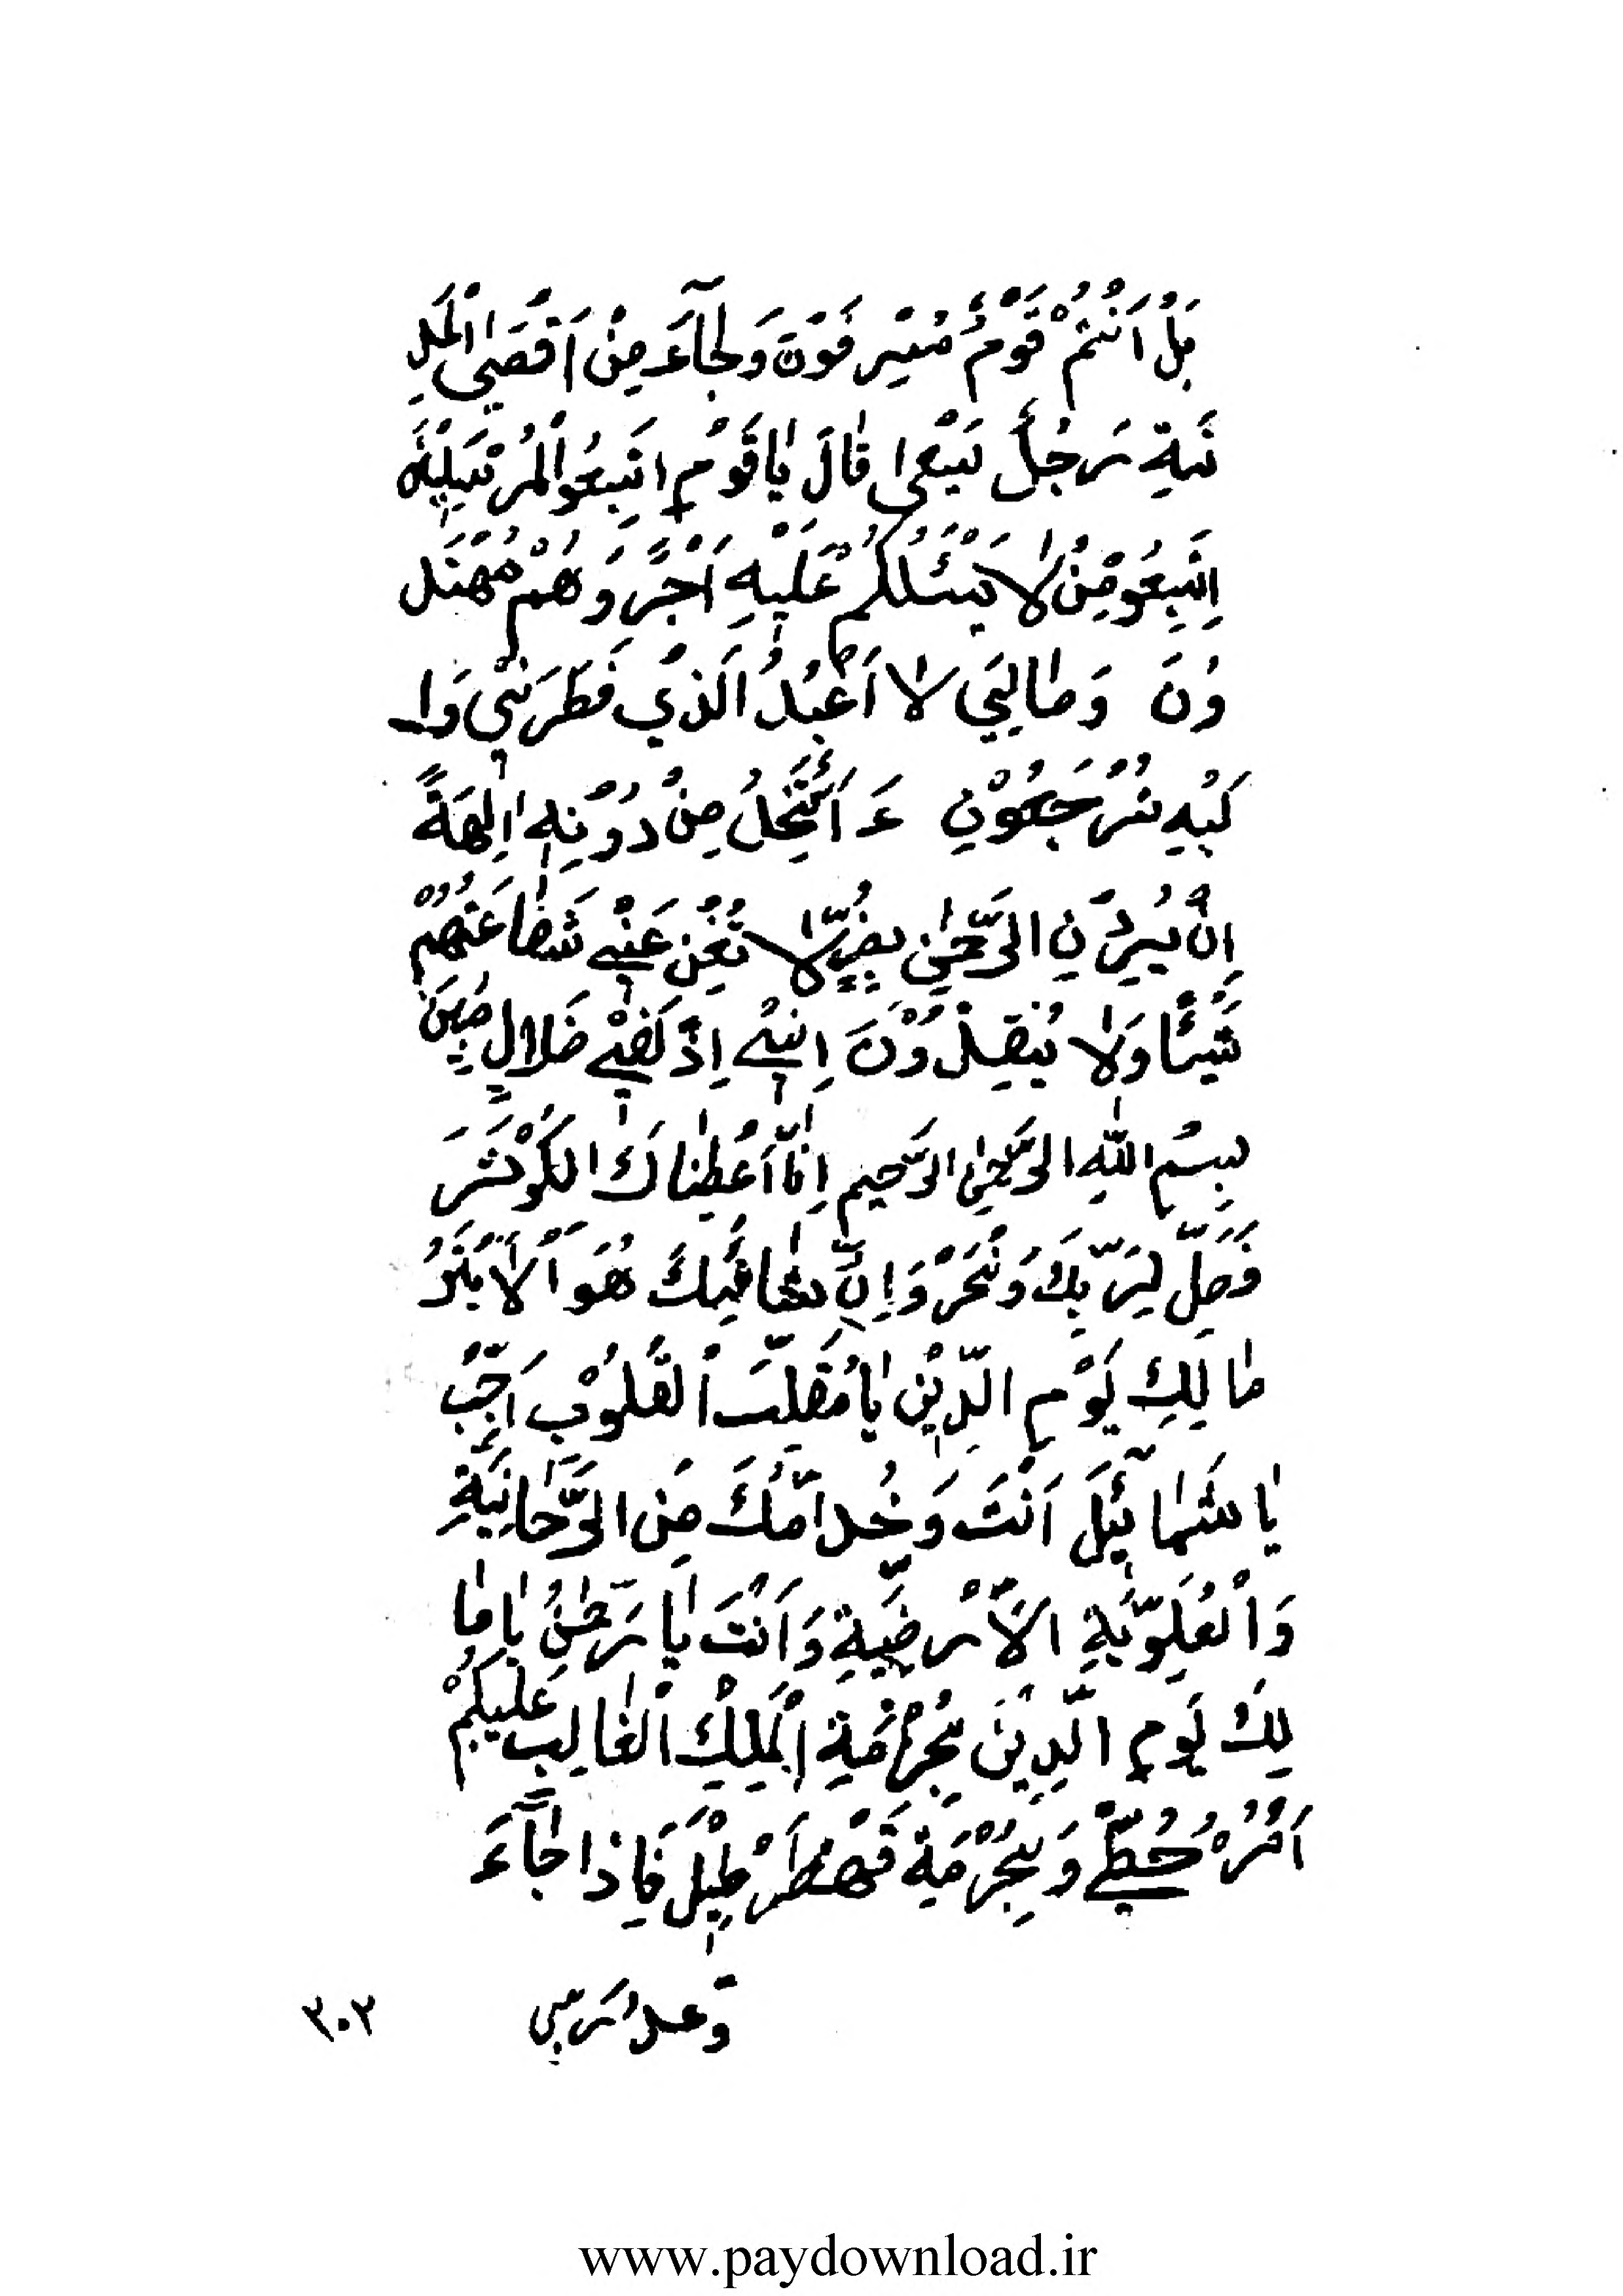 بَلْ اَنْتُمْ قَوْمٌ مُسْرِفُوْنَ وَجٰآءَ مِنْ اَقْصَى الْمَدِ
ينَةِ رَجُلٌ يَسْعٰى قٰالَ يٰا قَوْمِ اتَّبِعُوالْمُرْسَلِيْنَ
اِتَّبِعُوْ مَنْ لٰا يَسْئَلُكُمْ عَلَيْهِ اَجْرً وَ هُمْ مُهْتَد
وُنَ وَ مٰا لِيَ لٰا اَعْبُدُ الَّذِي فَطَرَنِي وَاِ
لَيْهِ تُرْجَعُوْنِ ءَ اَتَّخِذُ مِنْ دُوْنِهِ اٰلِهَةً
اِنْ يُرِدْنِ الرَّحْمٰنِ بِضُرٍّلٰا تُغْنِ عَنّى شَفٰاعَتُهُمْ
شَيْئًا وَلٰا يُنْقِذُوْنَ اِنّى اِذً لَفى ضَلالٍ مُبِيَن
بِسْمِ اللّٰهِ الرَّحْمٰنِ الرَّحيمِ اِنّٰا اَعْطَيْنٰاكَ الكَوْثَرَ
فَصَلِّ لِرَبِّكَ وَنْحَرْ وَ اِنَّ شٰانِئَكَ هُوَ اْلاَبْتَرُ
مٰا لِكِ يَوْمِ الدِّيْنِ يٰا مُقَلِّبَ الْقُلُوْبِ اَجِبْ
يٰا شَمٰائيلَ اَنْتَ وَ خُدامُّكَ مِنَ الرَّحٰانِيَّةِ
وَالْعُلَوِيَّةِ الاَرْضِيَّةِ وَ اَنْتَ يٰا رَحْمٰنُ يٰا مٰا
لِكُ يَومِ الدِّيْنَ بِحُرْمَةِ الْمَلِكِ الْغٰالِبِ عَلَيْكُمْ
اَمْرُهُ حُطّى وَ بِحُرْمَةِ قَهْطَرْطيلَ فَاِذا جٰآءَ
وَعْدُ رَبّى ٣٠٢
www.paydownload.ir